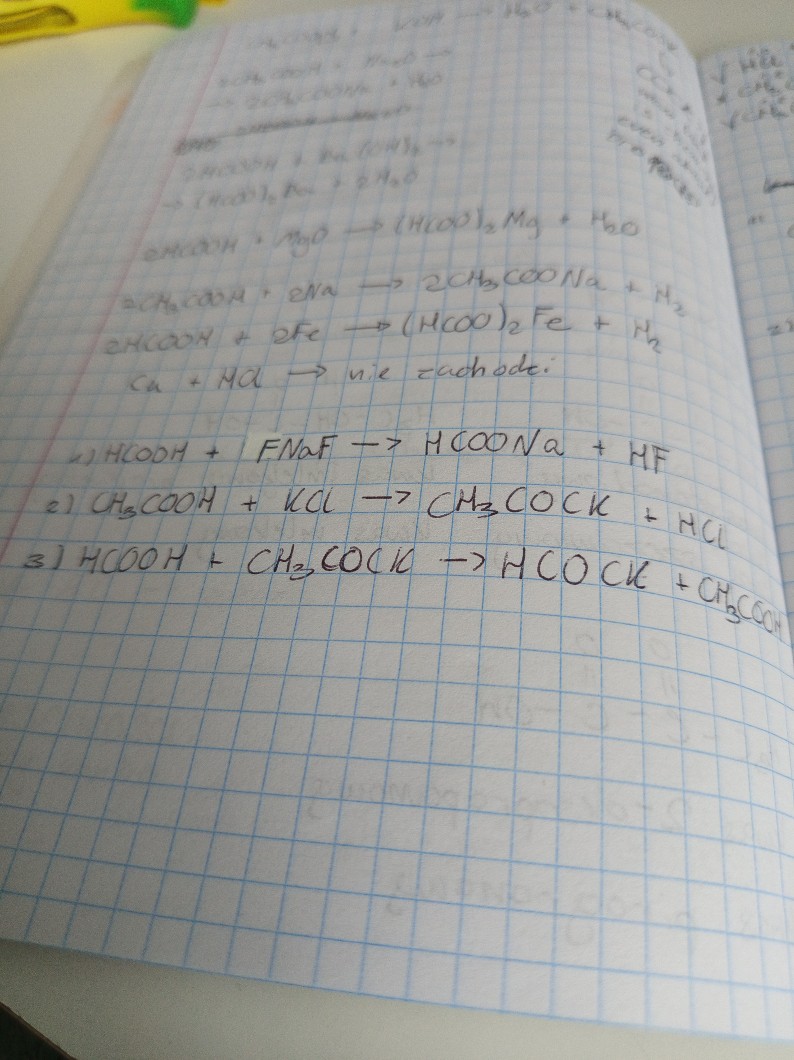 KOH → H₂O + CH₃COOK
2CH₃COOH + Na₂O →
→ 2CH₃COONa + H₂O
2HCOOH + Ba(OH)₂ →
→ (HCOO)₂Ba + 2H₂O
2HCOOH + MgO → (HCOO)₂Mg + H₂O
2CH₃COOH + 2Na → 2CH₃COONa + H₂
2HCOOH + 2Fe → (HCOO)₂Fe + H₂
Cu + HCl → nie zachodzi
1) HCOOH + FNaF → HCOONa + HF
2) CH₃COOH + KCl → CH₃COCK + HCl
3) HCOOH + CH₃COCK → HCOCK + CH₃COOH